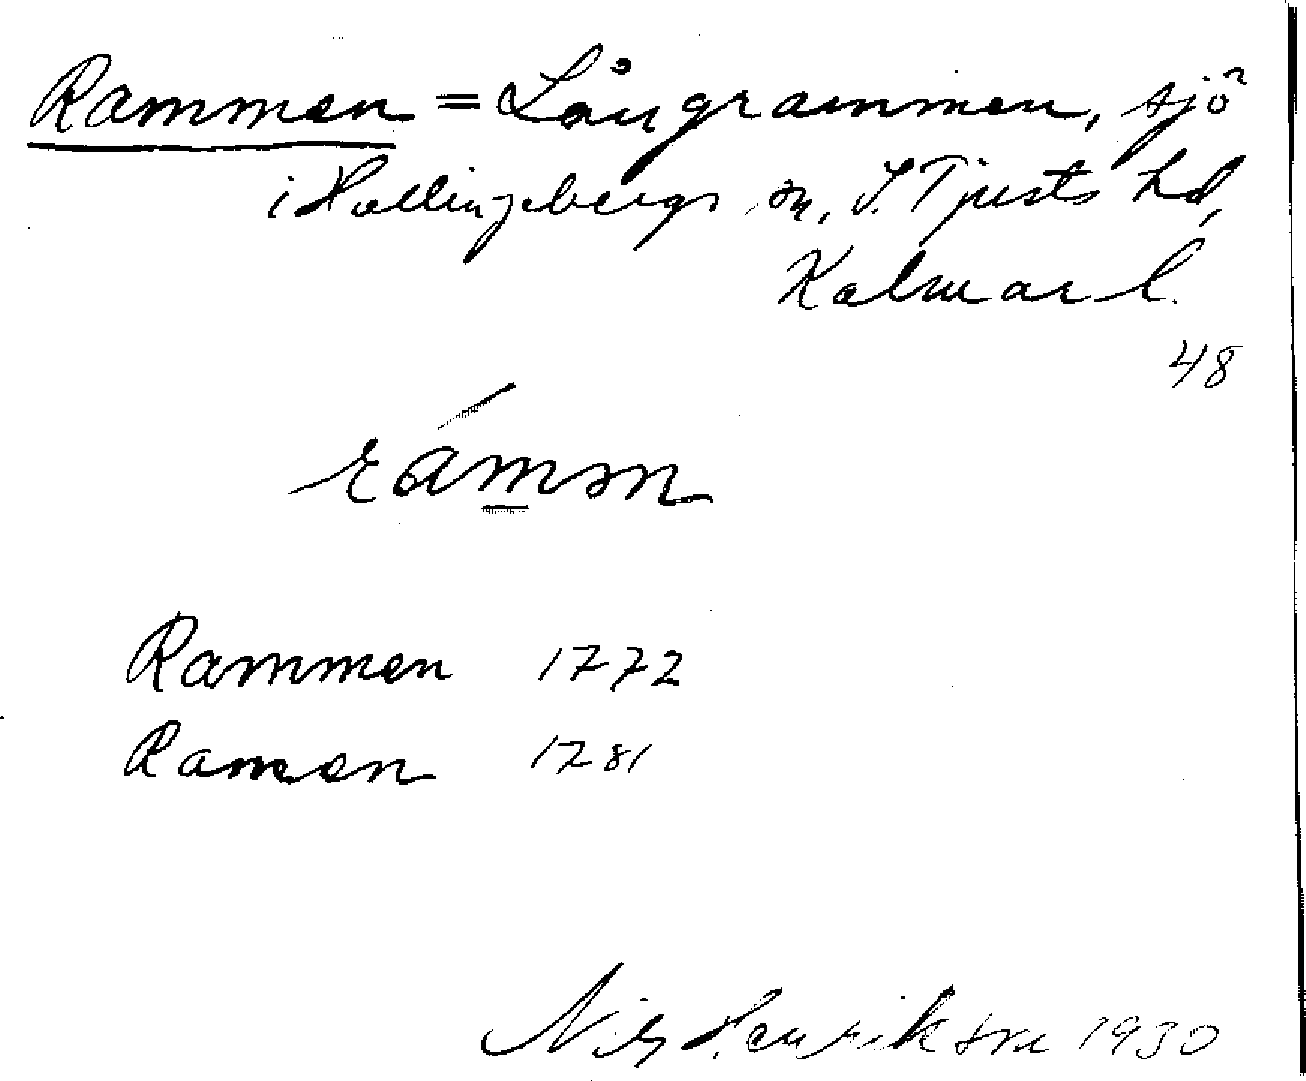 Rammen = Långrammen, sjö
i Hallingebergs sn, S. Tjusts hd,
Kalmar l.
48
rámṃn
Rammen 1772
Ramen 1781
Nils Henriksson 1930